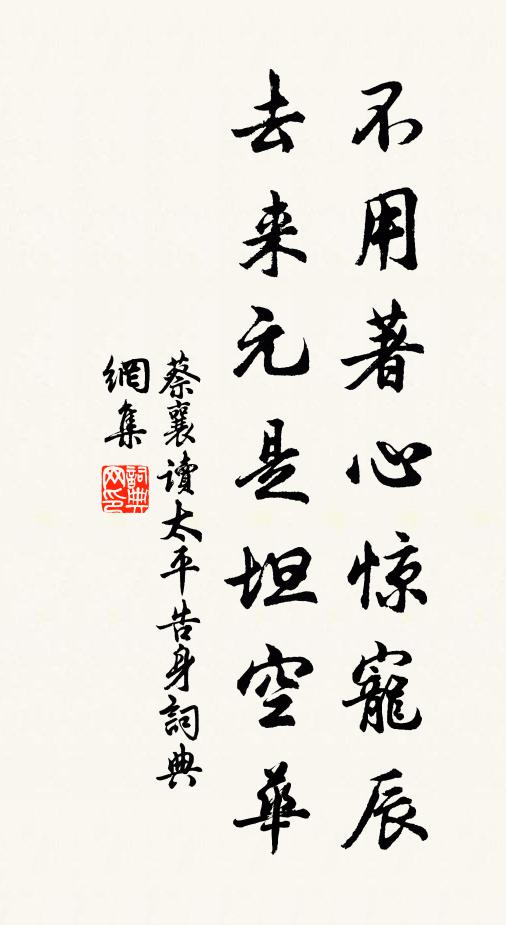 不用著心惊寵辰
去来元是坦空華
蔡襄讀太平告身詞典
網集
詞典网印